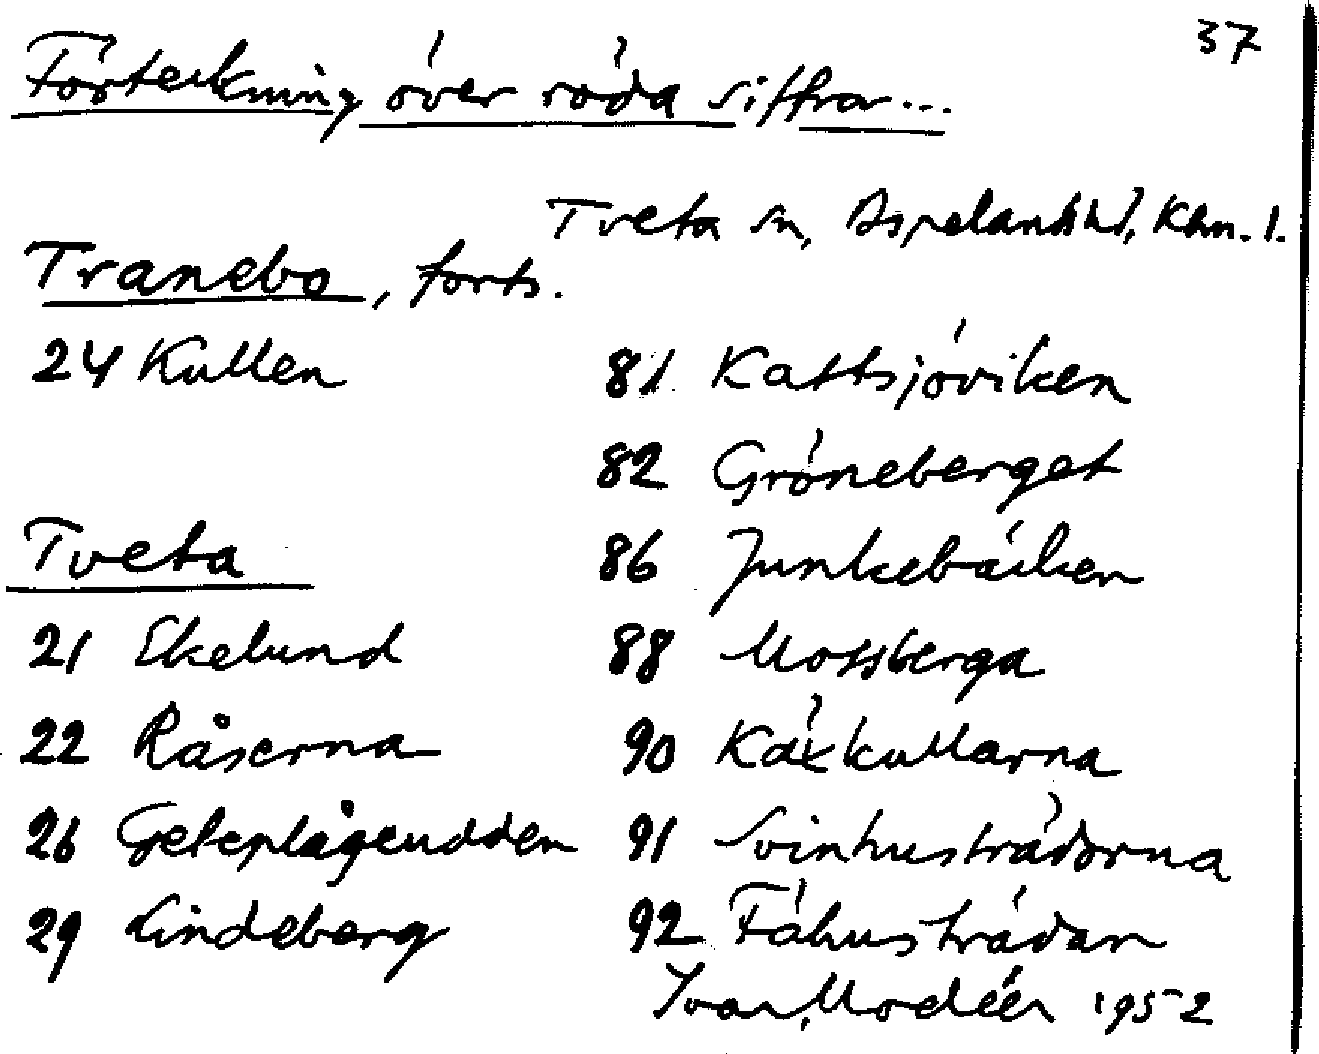 37
Förteckning över röda siffror...
Tveta sn, Aspelands hd, Klm. l.
Tranebo, forts.
24 Kullen
Tveta
21 Ekelund
22 Råserna
26 Geteplågeudden
29 Lindeberg
81 Kattsjöviken
82 Gröneberget
86 Junkebäcken
88 Mossberga
90 Käxkullarna
91 Svinhusträdorna
92 Fähusträdan
Ivar Modéer 1952